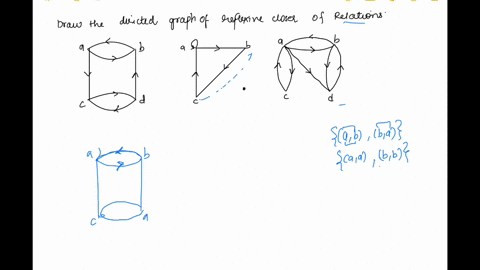 Draw the directed graph of reflexive closer of Relations.
a b
c d
a b
c
a b
c d
{(a,b), (b,a)}
{(a,a), (b,b)}
a b
c a